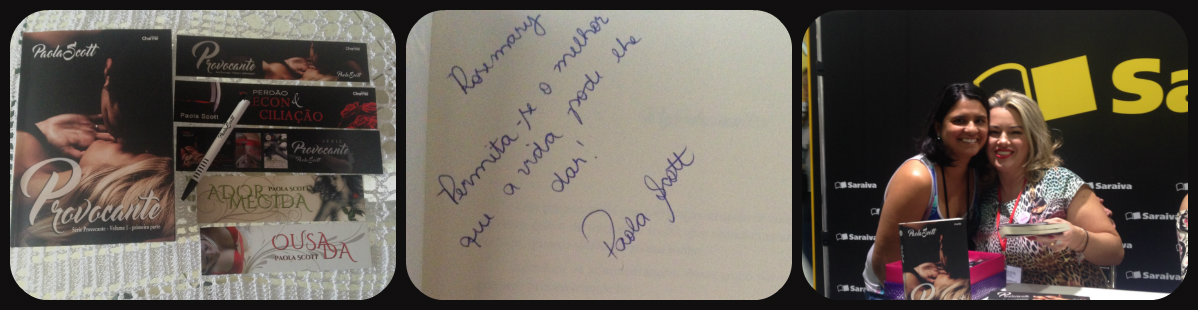 Paola Scott
Charme
Provocante
Série Provocante - Volume 1 - primeira parte
Provocante
Paola Scott
PERDÃO
RECON&
CILIAÇÃO
Paola Scott
Charme
Provocante
Paola Scott
ADOR
MECIDA
PAOLA SCOTT
OUSA
DA
PAOLA SCOTT
Rosemary
Permita-te o melhor
que a vida pode lhe
dar!
Paola Scott
Sa
Saraiva
Saraiva
Saraiva
Saraiva
Saraiva
Paola Scott